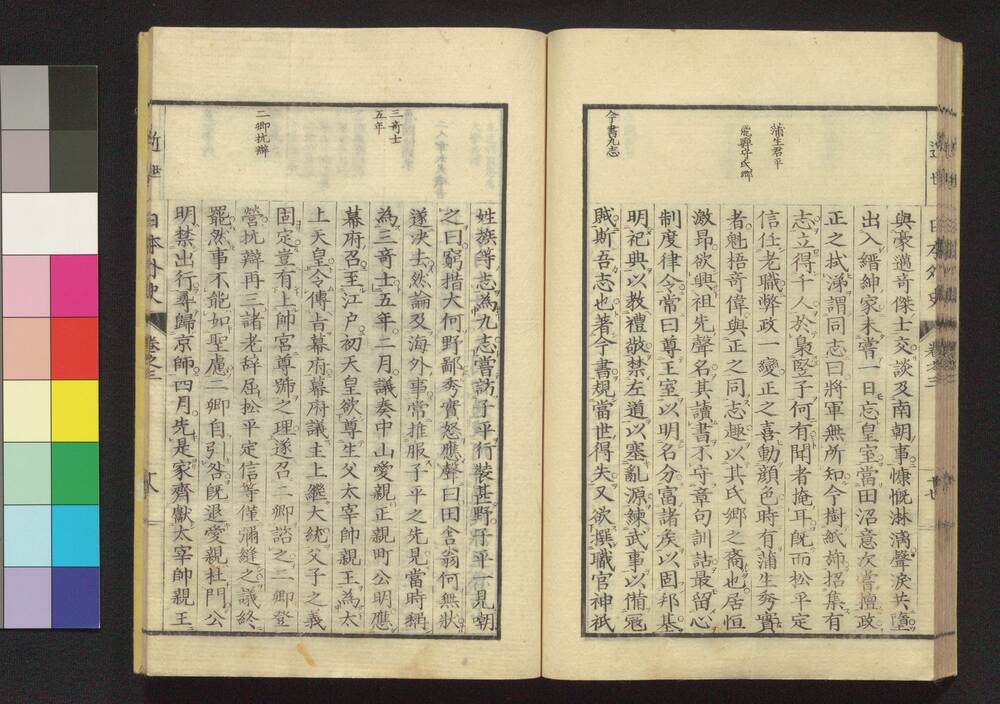 蒲生君平
蒲生氏郷
今書九志
與豪邁奇傑士交談及南朝事慷慨淋漓聲淚共墮
出入縉紳家未嘗一日忘皇室當田沼意次嘗擅政
正之拭涕謂同志曰將軍無所知今樹紙旆招集有
志立得千人於梟豎子何有聞者掩耳既而松平定
信任老職弊政一變正之喜動顔色時有蒲生秀實
者魁梧奇偉與正之同志趣以其氏郷之裔也居恒
激昂欲興祖先聲名其讀書不守章句訓詁最留心
制度律令常曰尊王室以明名分富諸矦以固邦基
明祀典以教禮敬禁左道以塞亂源練武事以備寇
賊斯吾志也著今書規當世得失又欲撰職官神祇
三奇士
五年
二卿抗辯
姓族等志為九志嘗訪子平行裝甚野子平一見嘲
之曰窮措大何野鄙秀實怒應聲曰田舎翁何無狀
遂決去然論及海外事常推服子平之先見當時稱
為三奇士五年二月議奏中山愛親正親町公明應
幕府召至江戸初天皇欲尊生父太宰帥親王為太
上天皇令傳旨幕府幕府議主上繼大統父子之義
固定豈有上帥宮尊號之理遂召二卿諮之二卿登
營抗辯再三諸老辞屈松平定信等僅彌縫之議終
罷然事不能如聖慮二卿自引咎既退愛親杜門公
明禁出行尋歸京師四月先是家齊獻太宰帥親王
近世
日本外史
卷之三